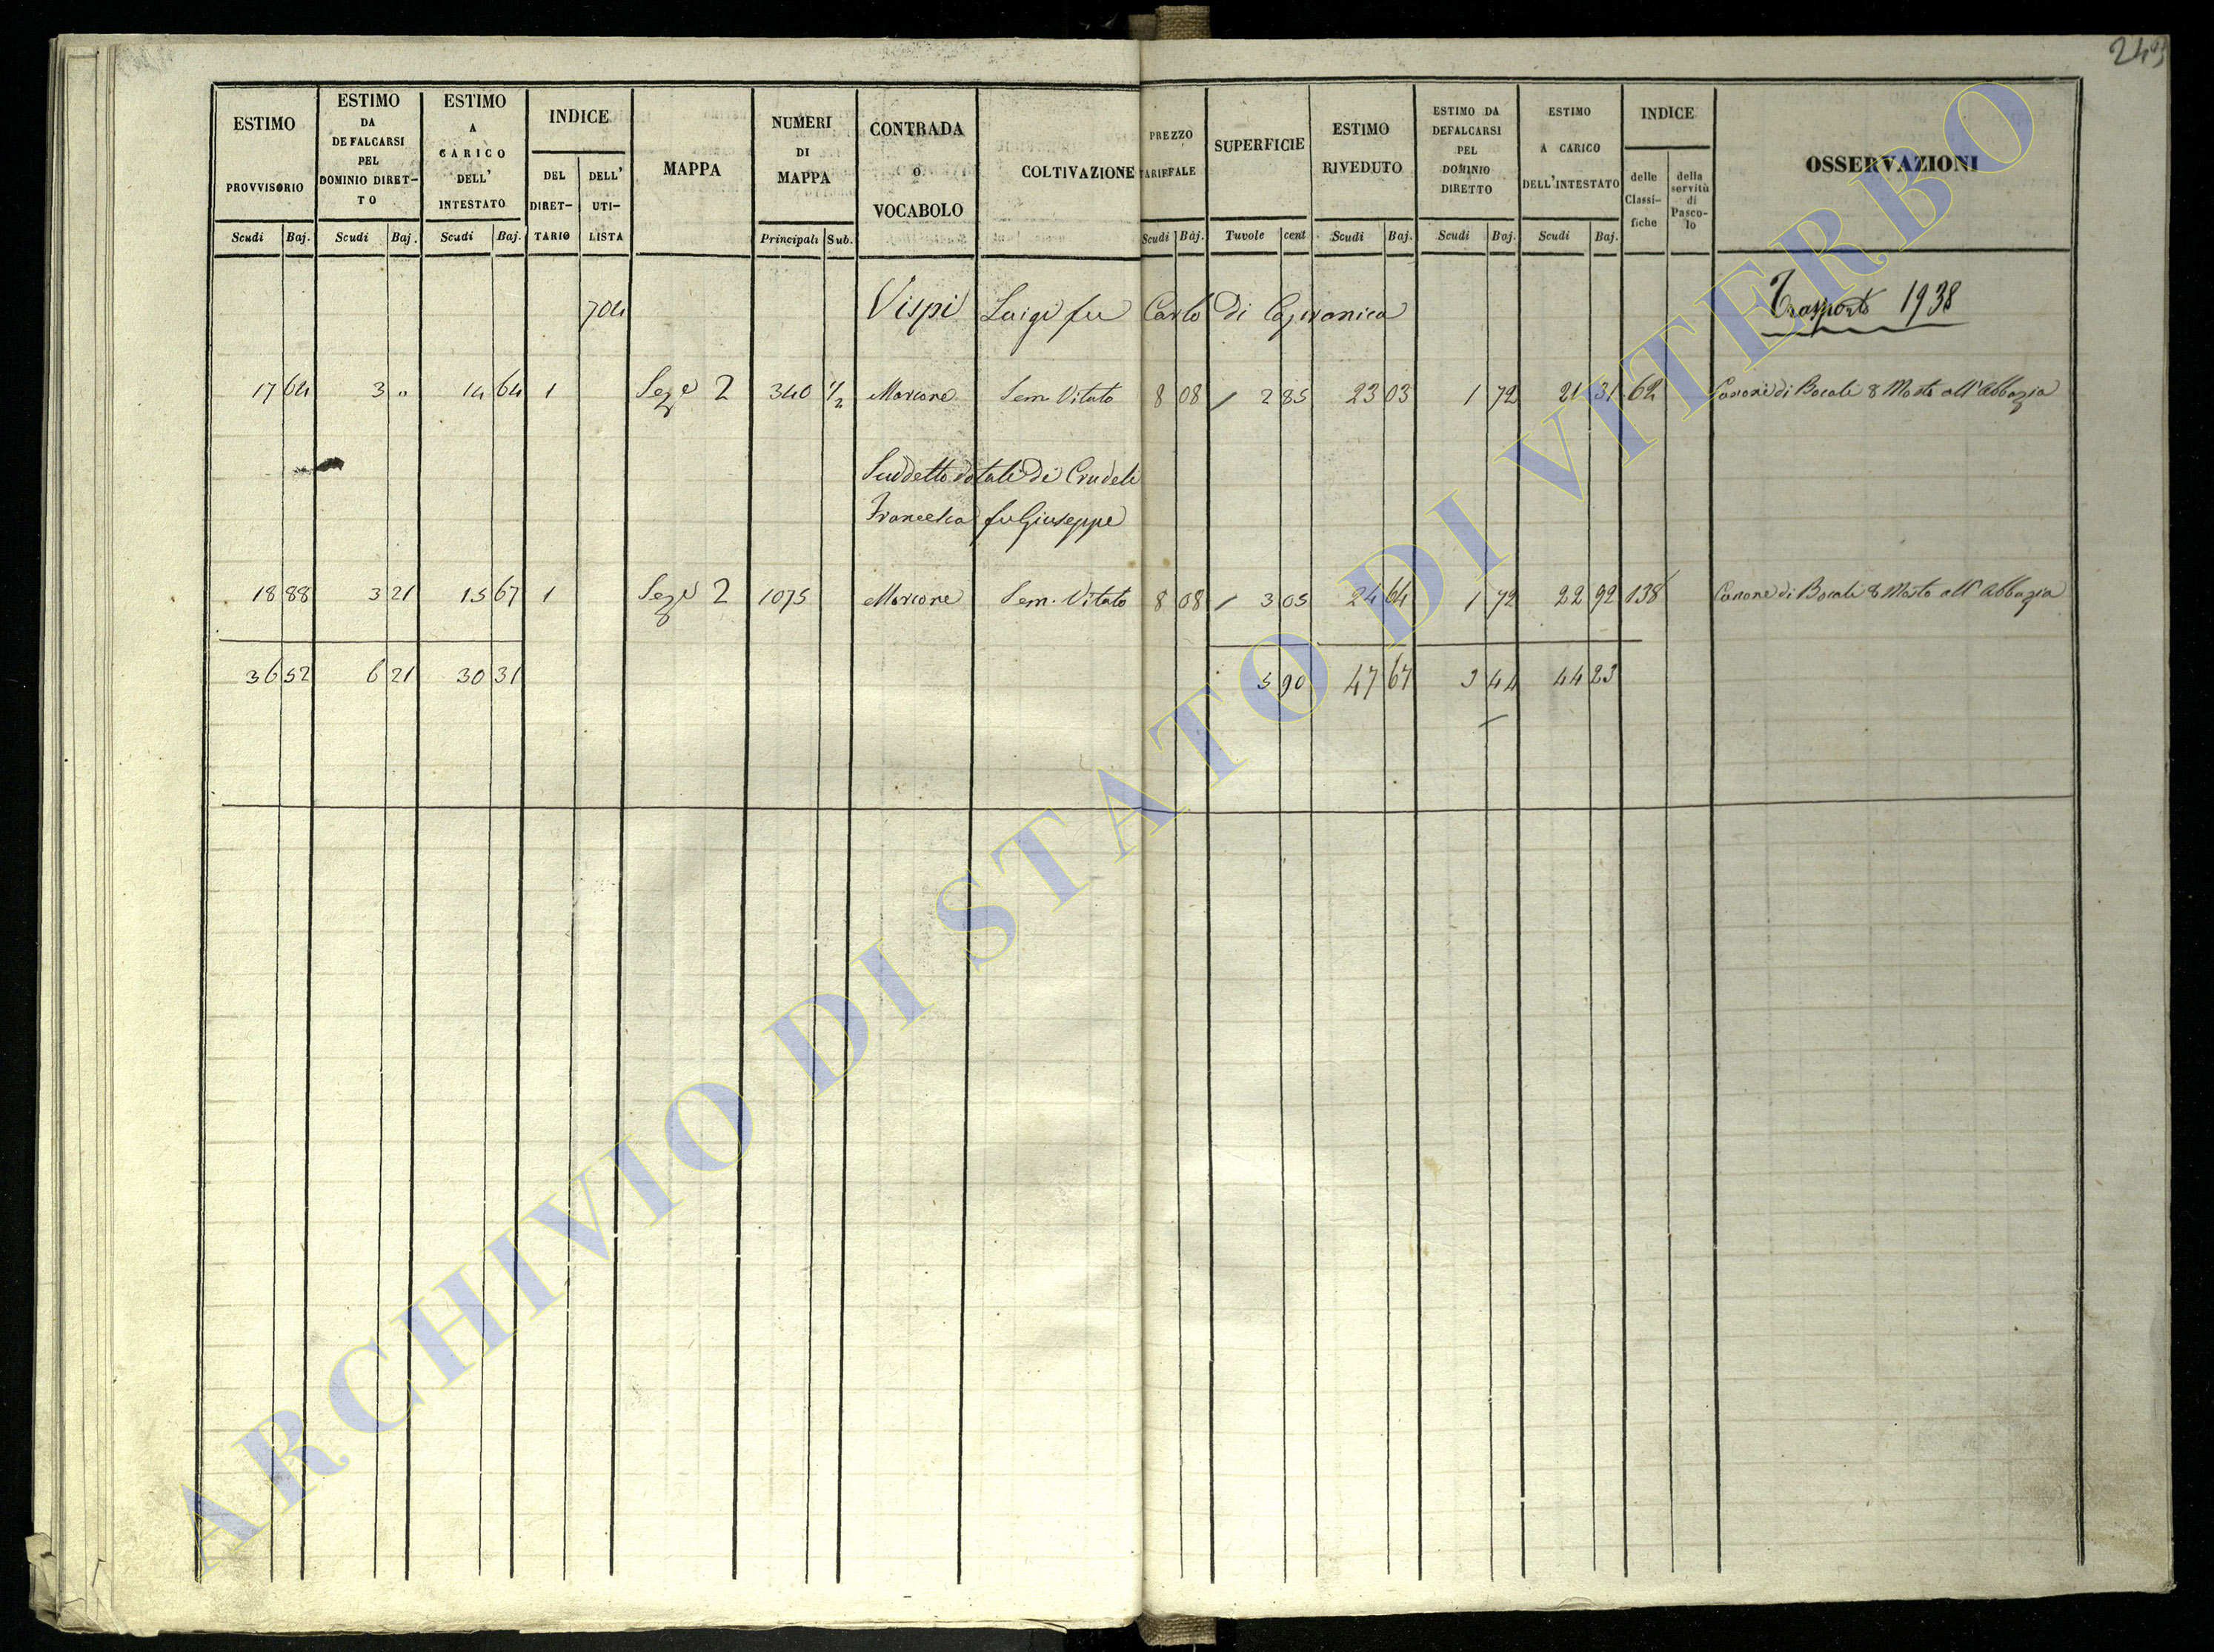 249
ESTIMO PROVVISORIO
ESTIMO DA DEFALCARSI PEL DOMINIO DIRET-TO
ESTIMO A CARICO DELL' INTESTATO
INDICE
DEL DIRET-TARIO
DELL' UTI-LISTA
MAPPA
NUMERI DI MAPPA
CONTRADA O VOCABOLO
COLTIVAZIONE
PREZZO TARIFFALE
SUPERFICIE
ESTIMO RIVEDUTO
ESTIMO DA DEFALCARSI PEL DOMINIO DIRETTO
ESTIMO A CARICO DELL'INTESTATO
INDICE
delle Classi-fiche
della servitù di Pasco-lo
OSSERVAZIONI
Scudi Baj. Scudi Baj. Scudi Baj. Principali Sub. Scudi Baj. Tavole cent. Scudi Baj. Scudi Baj. Scudi Baj.
704 Vispi Luigi fu Carlo di Capranica Trasporto 1938
17 64 3 " 14 64 1 Sez.e 2 340 1/2 Marcone Sem. Vitato 8 08 / 2 85 23 03 1 72 21 31 62 Canone di Bocali 8 Mosto all'Abbazia
Suddetto dotali di Crudeli
Francesca fu Giuseppe
18 88 3 21 15 67 1 Sez.e 2 1075 Marcone Sem. Vitato 8 08 / 3 05 24 64 1 72 22 92 138 Canone di Bocali 8 Mosto all'Abbazia
36 52 6 21 30 31 5 90 47 67 3 44 44 23
ARCHIVIO DI STATO DI VITERBO